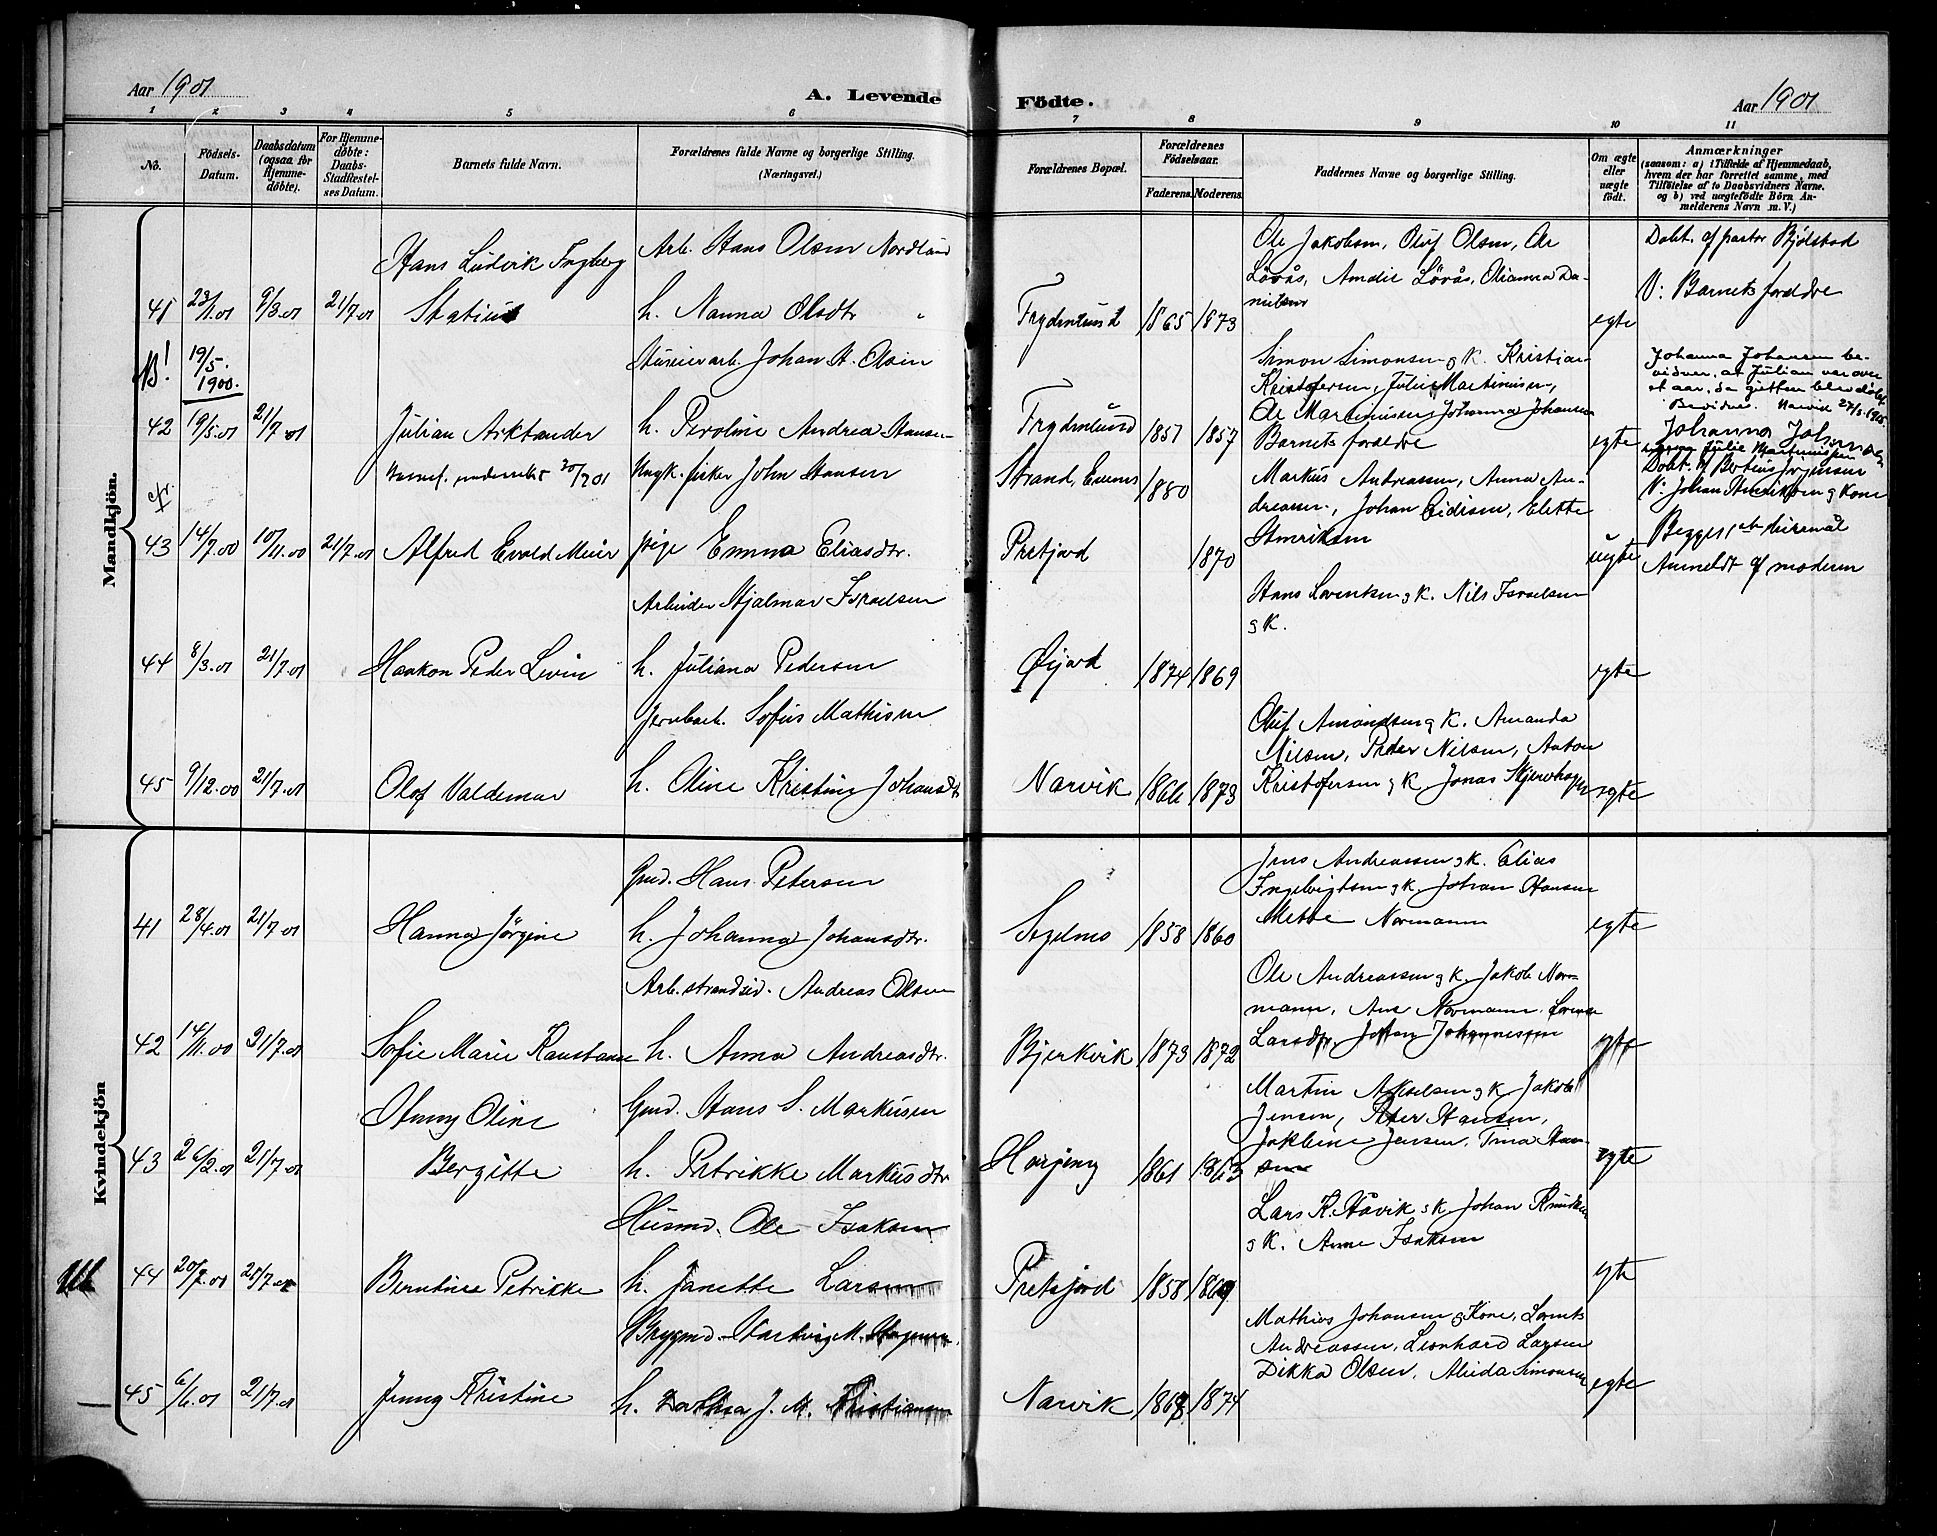 Aar 1901
A. Levende Födte.
Aar 1901
1 2 3 4 5 6 7 8 9 10 11
No.
Födsels-Datum.
Daabsdatum (ogsaa for Hjemme-döbte).
For Hjemme-döbte: Daabs-Stadfæstel-ses Datum.
Barnets fulde Navn.
Forældrenes fulde Navne og borgerlige Stilling. (Næringsvei.)
Forældrenes Bopæl.
Forældrenes Födselsaar.
Faderens. Moderens.
Faddernes Navne og borgerlige Stilling.
Om ægte eller uægte födt.
Anmærkninger
(saasom: a) i Tilfælde af Hjemmedaab, hvem der har forrettet samme, med Tilföielse af to Daabsvidners Navne. og b) ved uægtefödte Börn An-melderens Navn m. V.)
Mandkjön.
41 23/1.01 9/3.01 21/7.01
Hans Ludvik Ingberg
Statius
Arb. Hans Olsen Nordlund
h. Nanna Olsdtr "
Frydenlund 1865 1873
Ole Jakobsen, Oluf Olsen, Ole
Lövås, Amalie Lövås, Olianna Da-
nielsen
egte
Döbt. af pastor Bjölstad
V: Barnets foreldre
NB! 19/5. 1900.
42 19/5.01 21/7 01
Julian Arktander
Husmerarb. Johan H. Olsen
h. Peroline Andrea Hansen
Frydenlund 1851 1857
Simon Simonsen g K. Kristian
Kristofersen, Julie Martinusen,
Ole Martinusen, Johanna Johansen
Barnets foreldre
egte
Johanna Johansen be-
vidner, at Julian var over
et aar, da gutten blev döbt
Bevidnes. Narvik
Johanna Johansen
Julie Martinusen
43 14/7.00 10/11.00 21/7.01
underrettet 20/7 01
Alfred Evald Meier
Ungk. fisker John Hansen
pige Emma Eliasdtr.
Strand, Evenes 1880
Pretfjord 1870
Markus Andreassen, Anna An-
dreassen, Johan Eidissen, Elette
Henriksen
uegte
Döbt. af Berteus Jörgensen
V: Johan Henriksen g Kone
Begges 1ste leiermål
Anmeldt af moderen
44 8/3.01 21/7.01
Haakon Peder Levin
Arbeider Hjalmar Israelsen
h. Juliana Pedersen
Öijord 1874 1869
Hans Lorentsen g K. Nils Israelsen
g K.
egte
45 9/12.00 21/7.01
Olof Valdemar
Jernbarb. Sofus Mathisen
h. Oline Kristine Johansdtr
Narvik 1866 1873
Oluf Amondsen g K. Amanda
Nilsen, Peder Nilsen, Anton
Kristofersen g K. Jonas Skjervhagen
egte
Kvindekjön
41 28/4.01 21/7 01
Hanna Jörgine
Gmd. Hans Petersen
h. Johanna Johansdtr.
Segelnes 1858 1860
Jens Andreassen g K. Elias
Ingebrigtsen g K. Johan Hansen
Mette Normann
egte
42 14/11.00 21/7.01
Sofie Marie Konstanse
Arb. strandsid. Andreas Olsen
h. Anna Andreasdtr.
Bjerkvik 1873 1872
Ole Andreassen g K. Jakob Nor-
mann, Ane Normann.
Larsdtr, Johan Johannessen
egte
43 26/2.01 21/7.01
Hanny Oline
Bergitte
Gmd. Hans S. Markusen
h. Petrikke Markusdtr
Herjeng 1861 1863
Martin Akselsen g K. Jakob
Jensen, Peter Hansen,
Jakbine Jensen, Trina Han-
sen
egte
44 20/2.01 21/7.01
Berntine Petrikke
Husmd. Ole Isaksen
h. Janette Larsen
Pretfjord 1858 1869
Lars K. Håvik g K. Johan Knudsen
g K. Anne Isaksen
egte
45 6/6.01 21/7.01
Jenny Kristine
Brygmd. Hartvig M. Hagensen.
h. Dorthea J. M. Kristiansen
Narvik 1867 1874
Mathias Johansen g Kone, Lorents
Andreassen, Leonhard Larsen
Dikka Olsen, Alida Simonsen
egte